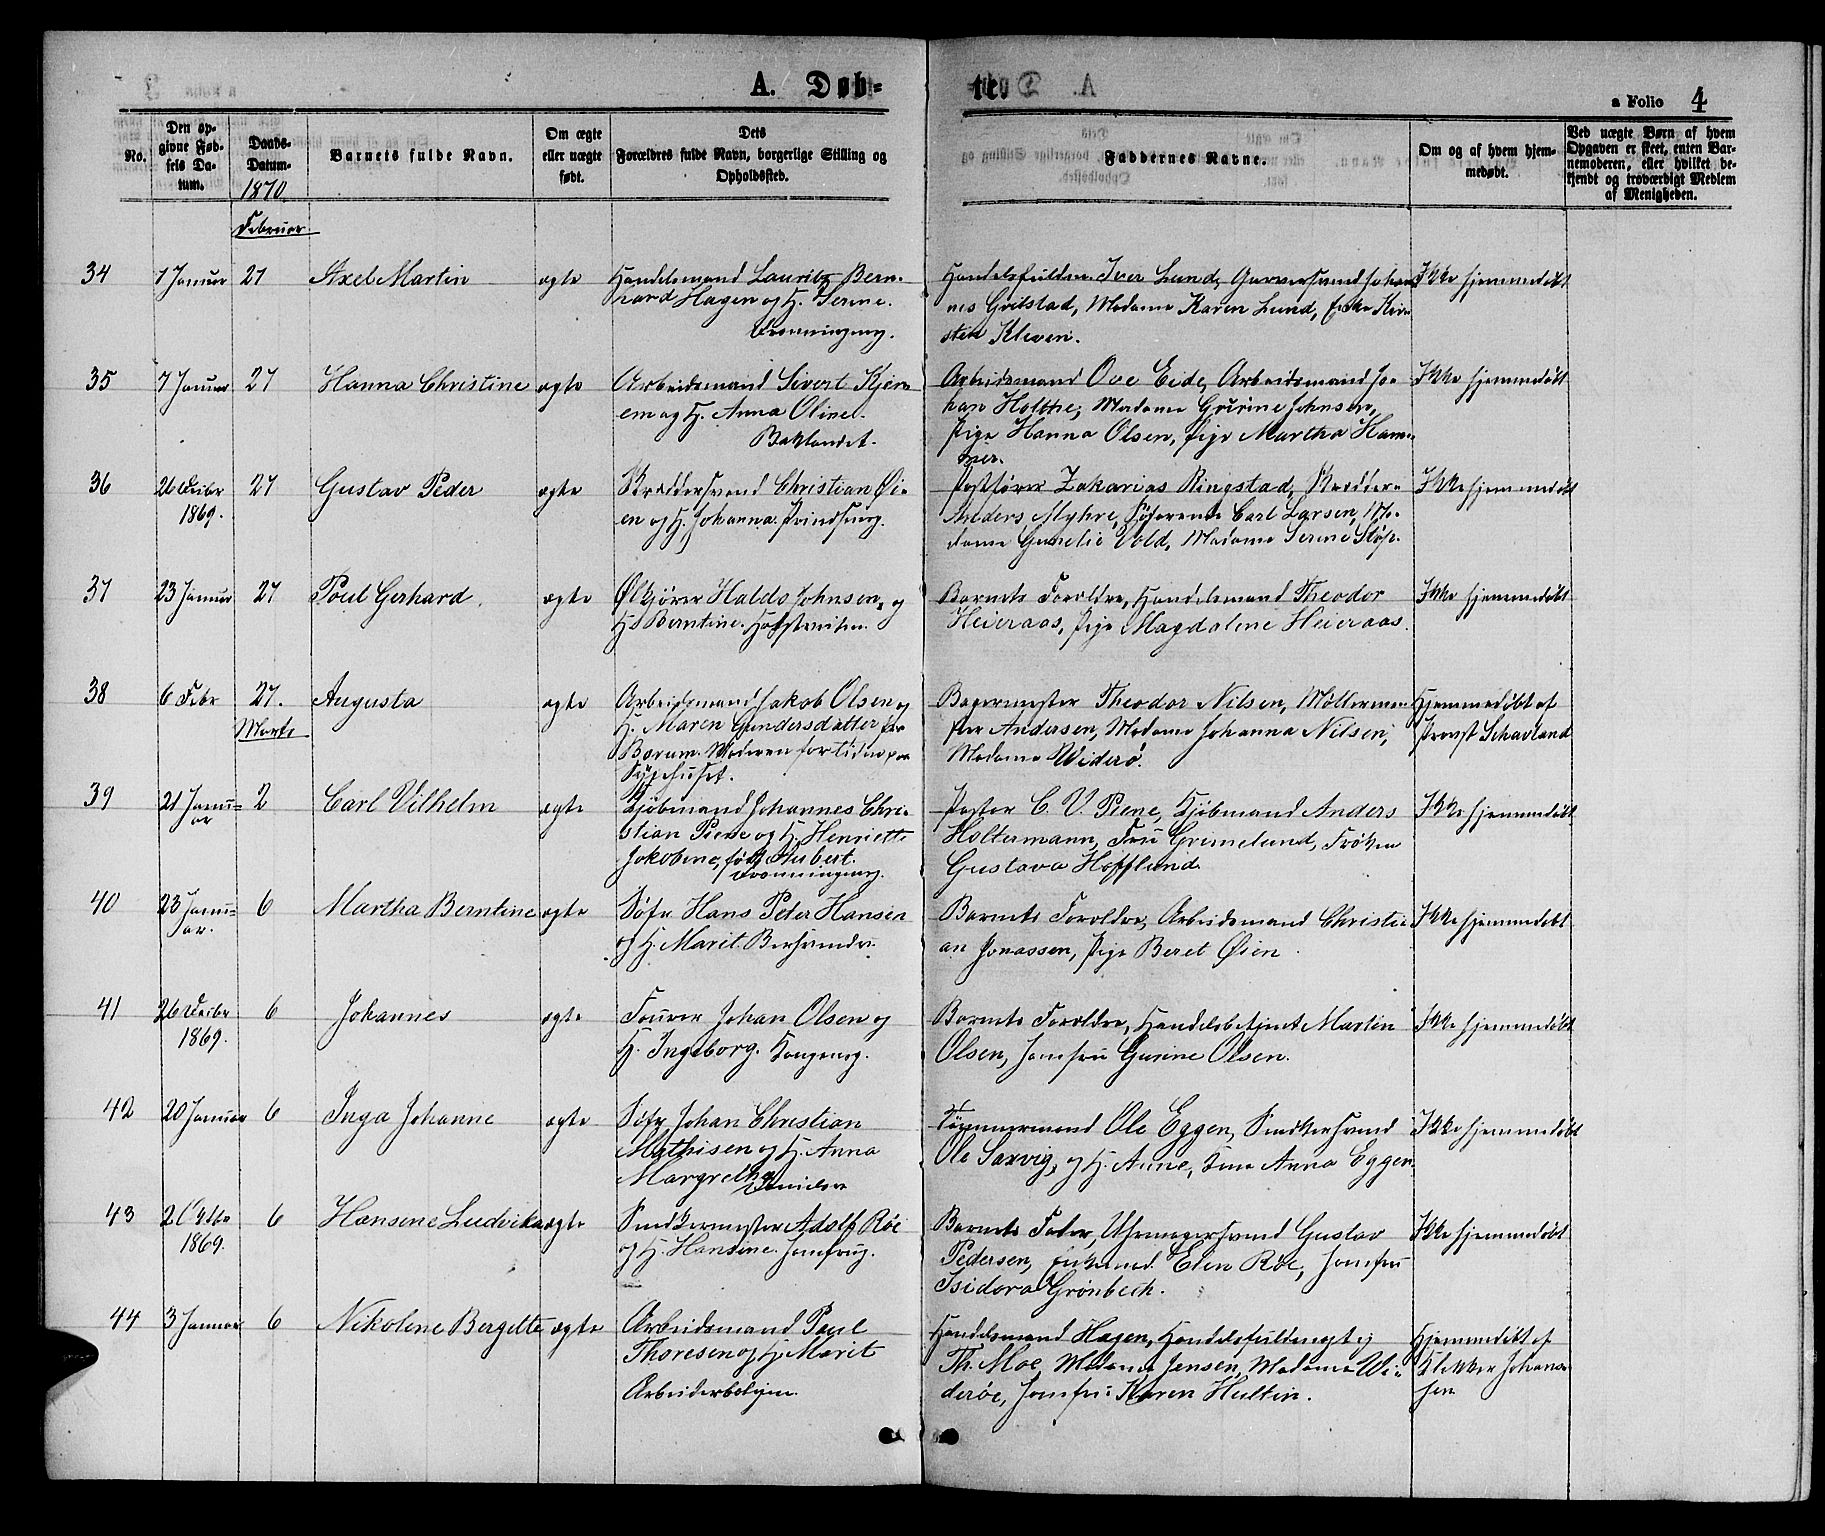 A. Døb=
te.
a Folio 4
No.
Den op-
givne Fød-
sels Da-
tum.
Daabs-
Datum.
1870.
Barnets fulde Navn.
Om ægte
eller uægte
født.
Dets
Forældres fulde Navn, borgerlige Stilling og
Opholdssted.
Faddernes Navne.
Om og af hvem hjem-
medøbt.
Ved uægte Børn af hvem
Opgaven er skeet, enten Bar-
nemoderen, eller hvilket be-
kjendt og troværdigt Medlem
af Menigheden.
Februar
34 7 Januar 27 Axel Martin ægte Handelsmand Lauritz Bern-
hard Hagen og H. Serine.
Handelsfuldm. Iver Lund, Garversvend Johan-
nes Gridstad, Madame Karen Lund, Enke Kir-
sten Kleven.
Ikke hjemmedøbt
35 7 Januar 27 Hanna Christine ægte Arbeidsmand Sivert Kjen-
em og H. Anna Oline.
Baklandet.
Arbeidsmand Ove Eide, Arbeidsmand Jo-
han Holthe, Madame Gurine Johnsen,
Pige Hanna Olsen, Pige Martha Ham-
mer.
Ikke hjemmedøbt
36 26 Decbr
1869. 27 Gustav Peder ægte Skræddersvend Christian Øi-
en og H. Johanna. Prindsensg.
Postfører Zakarias Ringstad, Skrædder
Anders Myhre, Søfarende Carl Larsen, Ma-
dame Gunelie Vold, Madame Serine Støp.
Ikke hjemmedøbt
37 23 Januar 27 Poul Gerhard. ægte Ølkjører Halds Johnsen, og
H. Berntine.
Barnets Forældre, Handelsmand Theodor
Heieraas, Pige Magdalene Heieraas.
Ikke hjemmedøbt
38 6 Febr 27. Augusta ægte Arbeidsmand Jakob Olsen og
H. Maren Gundersdatter fra
Bærum. Moderen for Tiden paa
Sygehuset.
Bagermester Theodor Nilsen, Møllerme-
ster Andersen, Madame Johanna Nilsen,
Madame Widerø.
Hjemmedøbt af
Provst Schavland
Marts
39 21 Janu-
ar 2 Carl Vilhelm ægte Kjøbmand Johannes Chri-
stian Piene og H. Henriette
Jakobine, født Hubert.
Dronningensg.
Pastor C. V. Piene, Kjøbmand Anders
Holtermann, Fru Grimelund, Frøken
Gustava Hofflund.
Ikke hjemmedøbt
40 23 Janu-
ar. 6 Martha Berntine ægte Søfr. Hans Peder Hansen
og H. Marit.
Barnets Forældre, Arbeidsmand Christi-
an Jonassen, Pige Beret Øien.
Ikke hjemmedøbt
41 26 Decbr
1869. 6 Johannes ægte Fourer Johan Olsen og
H. Ingeborg. Kongensg.
Barnets Forældre, Handelsbetjent Martin
Olsen, Jomfru Gurine Olsen.
Ikke hjemmedøbt
42 20 Januar 6 Inga Johanne ægte Søfr Johan Christian
Mathisen og H. Anna
Margrethe
Tømmermand Ole Eggen, Snedkersvend
Ole Saxvig, og H. Anne, Anna Eggen.
Ikke hjemmedøbt
43 2 Octbr
1869. 6 Hansene Ludvika ægte Snedkermester Adolf Röe
og H. Hansine. Jomfrug.
Barnets Fader, Uhrmagersvend Gustav
Pedersen, Enkemad. Elen Röe, Jomfru
Isidora Grönbech.
Ikke hjemmedøbt
44 3 Januar 6 Nikoline Bergitte ægte Arbeidsmand Paul
Thoresen og H. Marit
Arbeiderboligen.
Handelsmand Hagen, Handelsfuldmægtig
Th. Moe, Madame Jensen, Madame Wi-
deröe, Jomfru Karen Hultin.
Hjemmedøbt af
Klokker Johan-
sen